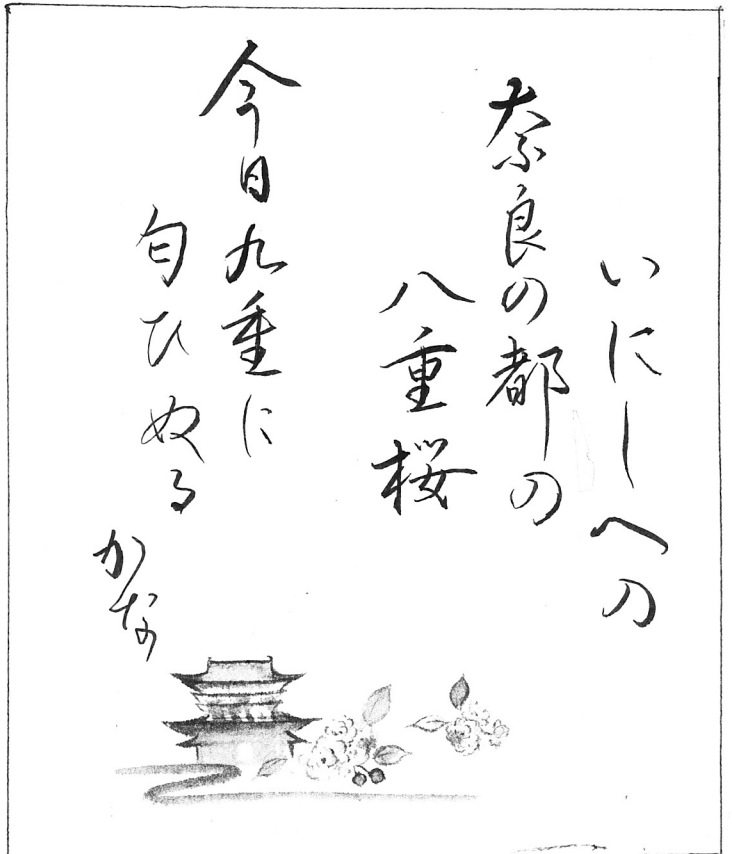 いにしへの
奈良の都の
八重桜
今日九重に
匂ひぬる
かな